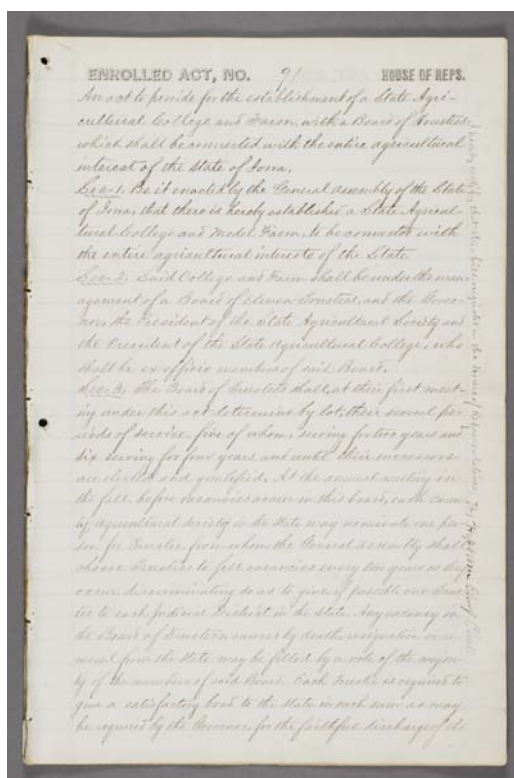 ENROLLED ACT, NO. 91 HOUSE OF REPS.
An act to provide for the establishment of a State Agri-
cultural College and Farm, with a Board of Trustees
which shall be connected with the entire agricultural
interest of the State of Iowa.
Sec 1. Be it enacted by the General Assembly of the State
of Iowa, that there is hereby established a State Agricul-
tural College and Model Farm, to be connected with
the entire agricultural interests of the State
Sec 2. Said College and Farm shall be under the man-
agement of a Board of eleven Trustees, and the Gover-
nor, the President of the State Agricultural Society and
the President of the State Agricultural College, who
shall be ex officio members of said Board.
Sec 3. The Board of Trustees shall, at their first meet-
ing under this act determine by lot, their several pe-
riods of service, five of whom, serving for two years and
six serving for four years, and until their successors
are elected and qualified. At the annual meeting in
the fall, before vacancies occur in this board, each coun-
ty agricultural society in the State may nominate one per-
son for Trustee, from whom the General Assembly shall
choose Trustees to fill vacancies every two years as they
occur, discriminating so as to give if possible one Trus-
tee to each Judicial District in the State. Any vacancy in
the Board of Trustees caused by death, resignation or re-
moval from the State, may be filled by a vote of the major-
ity of the members of said Board. Each Trustee is required to
give a satisfactory bond to the State in such sum as may
be required by the Governor, for the faithful discharge of the
I hereby certify that this bill originated in the House of Representatives.